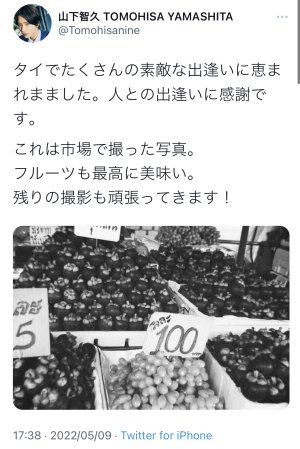 山下智久 TOMOHISA YAMASHITA
@Tomohisanine
タイでたくさんの素敵な出逢いに恵ま
れまました。人との出逢いに感謝で
す。
これは市場で撮った写真。
フルーツも最高に美味い。
残りの撮影も頑張ってきます！
ละ
5
ถุงละ
100
17:38 · 2022/05/09 · Twitter for iPhone